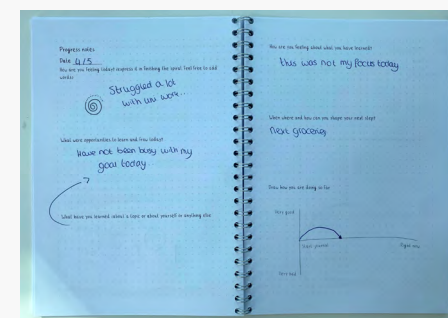 Progress notes
Date 4/5
How are you feeling today? express it in finishing the spiral feel free to add
words!
Struggled a lot
with uni work..
What were opportunities to learn and grow today?
Have not been busy with my
goal today
What have you learned (about a topic or about yourself or anything else
How are you feeling about what you have learned?
this was not my focus today
When where and how can you shape your next step?
next groceries
Draw how you are doing so far
Very good
Start
Right now
Very bad